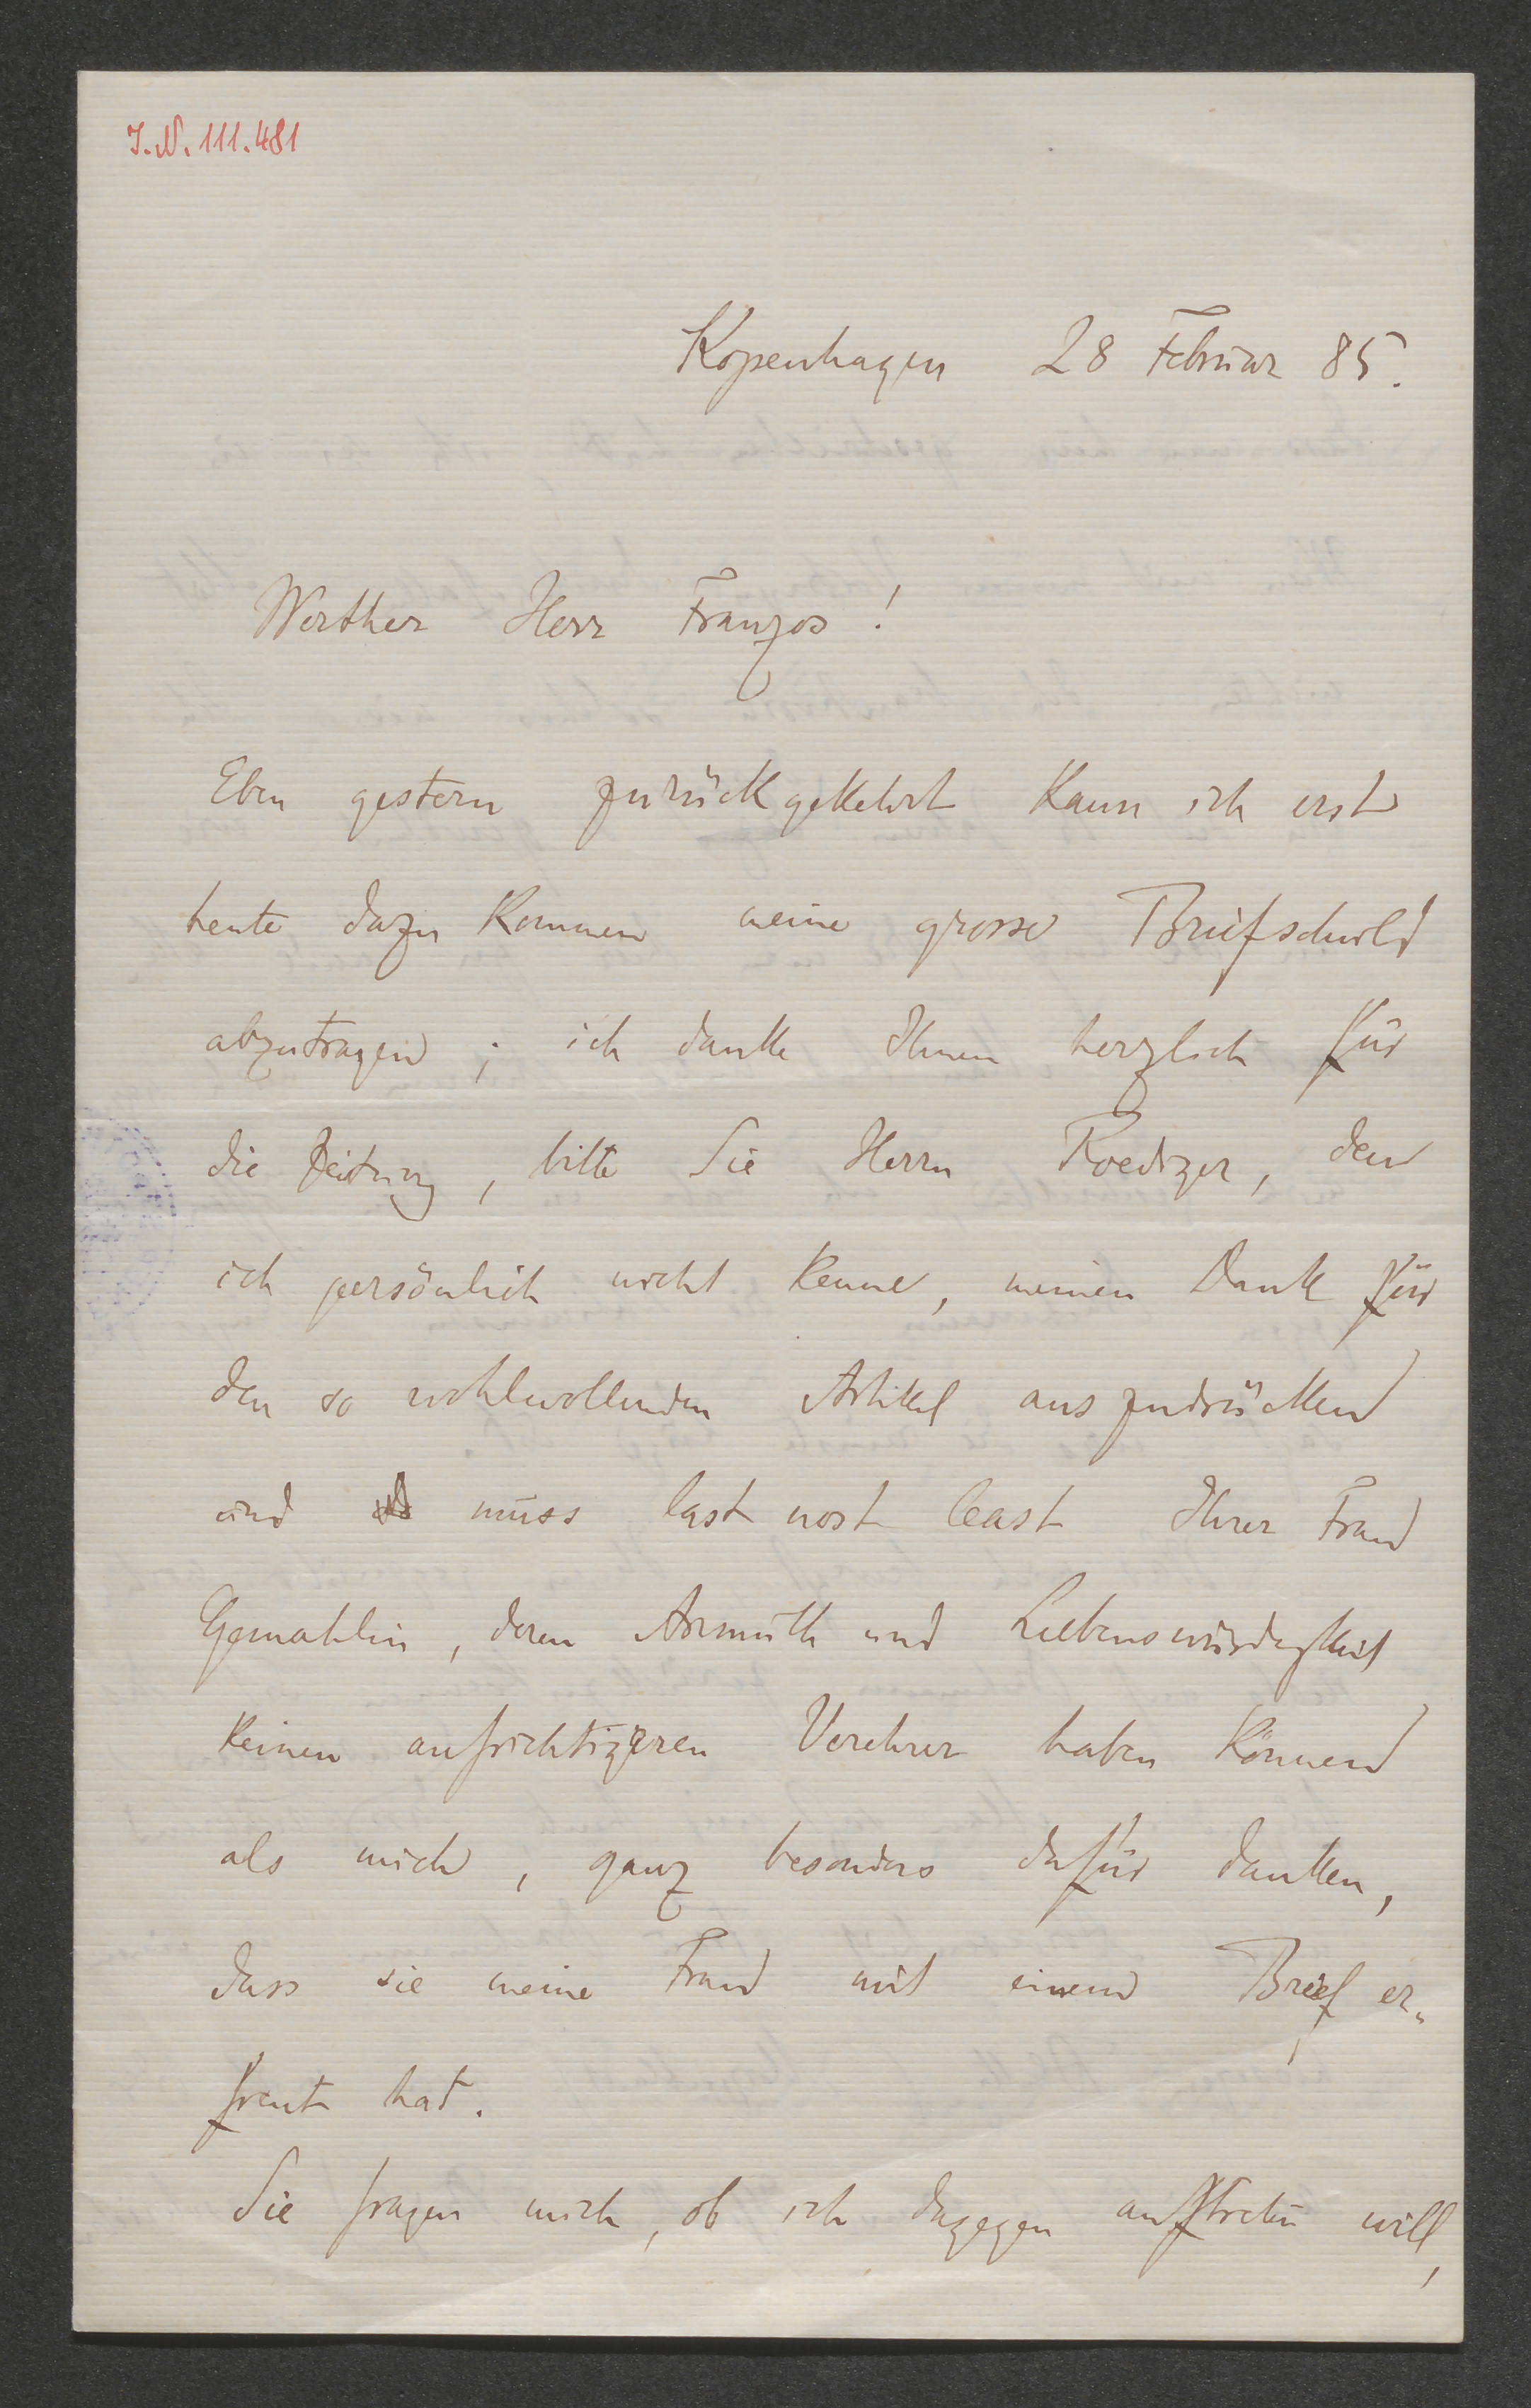 J.N. 111.481
Kopenhagen 28 Februar 85.
Werther Herr Franzos!
Eben gestern zurückgekehrt kann ich erst
heute dazu kommen meine grosse Briefschuld
abzutragen; ich danke Ihnen herzlich für
die Zeitung, bitte Sie Herrn Roediger, den
ich persönlich nicht kenne, meinen Dank für
den so wohlwollenden Artikel auszudrücken
und muss last not least Ihrer Frau
Gemahlin, deren Anmuth und Liebenswürdigkeit
keinen aufrichtigeren Verehrer haben können
als mich, ganz besonders dafür danken,
dass sie meine Frau mit einem Brief er-
freut hat.
Sie fragen mich, ob ich dagegen auftreten will,